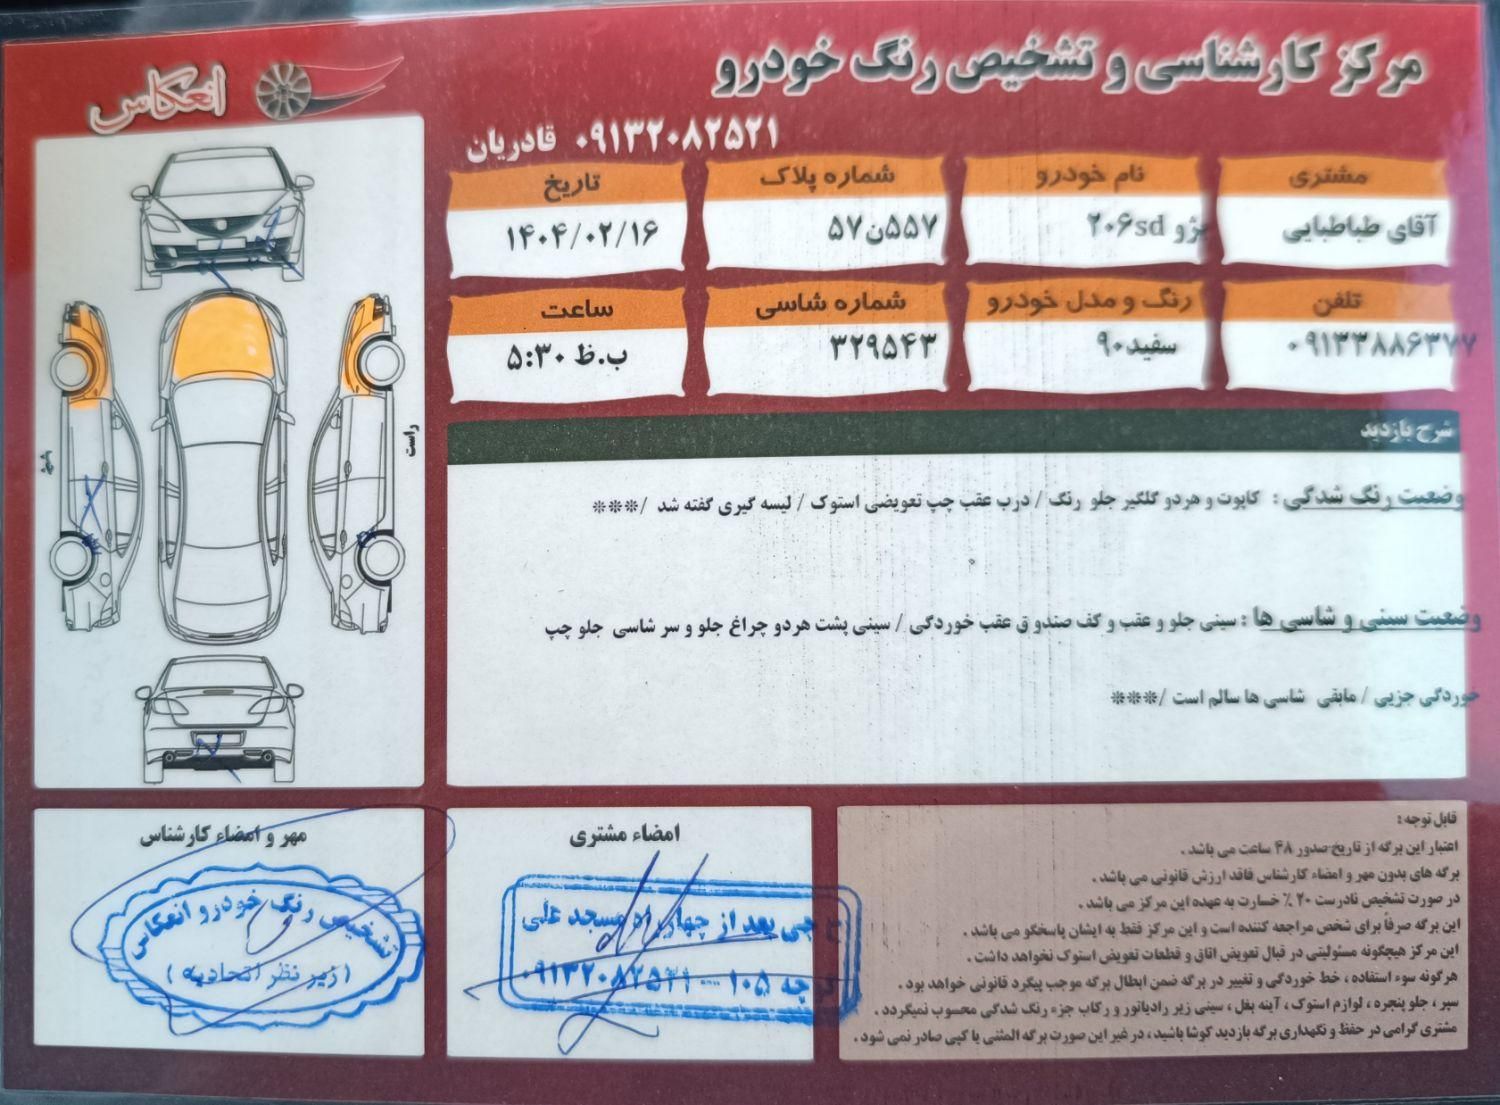 مرکز کارشناسی و تشخیص رنگ خودرو
انعکاس
۰۹۱۳۲۰۸۲۵۲۱ قادریان
مشتری
آقای طباطبایی
نام خودرو
پژو ۲۰۶sd
شماره پلاک
۵۵۷ن۵۷
تاریخ
۱۴۰۴/۰۲/۱۶
تلفن
۰۹۱۳۳۸۸۶۳۷۷
رنگ و مدل خودرو
سفید۹۰
شماره شاسی
۳۲۹۵۴۳
ساعت
۵:۳۰ ب.ظ
راست
چپ
شرح بازدید
وضعیت رنگ شدگی : کاپوت و هردو گلگیر جلو رنگ / درب عقب چپ تعویضی استوک / لیسه گیری گفته شد /***
وضعیت سینی و شاسی ها : سینی جلو و عقب و کف صندوق عقب خوردگی / سینی پشت هردو چراغ جلو و سر شاسی جلو چپ
خوردگی جزیی / مابقی شاسی ها سالم است /***
قابل توجه :
اعتبار این برگه از تاریخ صدور ۴۸ ساعت می باشد .
برگه های بدون مهر و امضاء کارشناس فاقد ارزش قانونی می باشد .
در صورت تشخیص نادرست ۲۰ ٪ خسارت به عهده این مرکز می باشد .
این برگه صرفاً برای شخص مراجعه کننده است و این مرکز فقط به ایشان پاسخگو می باشد .
این مرکز هیچگونه مسئولیتی در قبال تعویض اتاق و قطعات تعویض استوک نخواهد داشت .
هرگونه سوء استفاده ، خط خوردگی و تغییر در برگه ضمن ابطال برگه موجب پیگرد قانونی خواهد بود .
سپر ، جلو پنجره ، لوازم استوک ، آینه بغل ، سینی زیر رادیاتور و رکاب جزء رنگ شدگی محسوب نمیگردد .
مشتری گرامی در حفظ و نگهداری برگه بازدید کوشا باشید ، در غیر این صورت برگه المثنی یا کپی صادر نمی شود .
امضاء مشتری
جی بعد از چهار راه مسجد علی
۱۰۵ - ۰۹۱۳۲۰۸۲۵۲۱
مهر و امضاء کارشناس
تشخیص رنگ خودرو انعکاس
( زیر نظر اتحادیه )